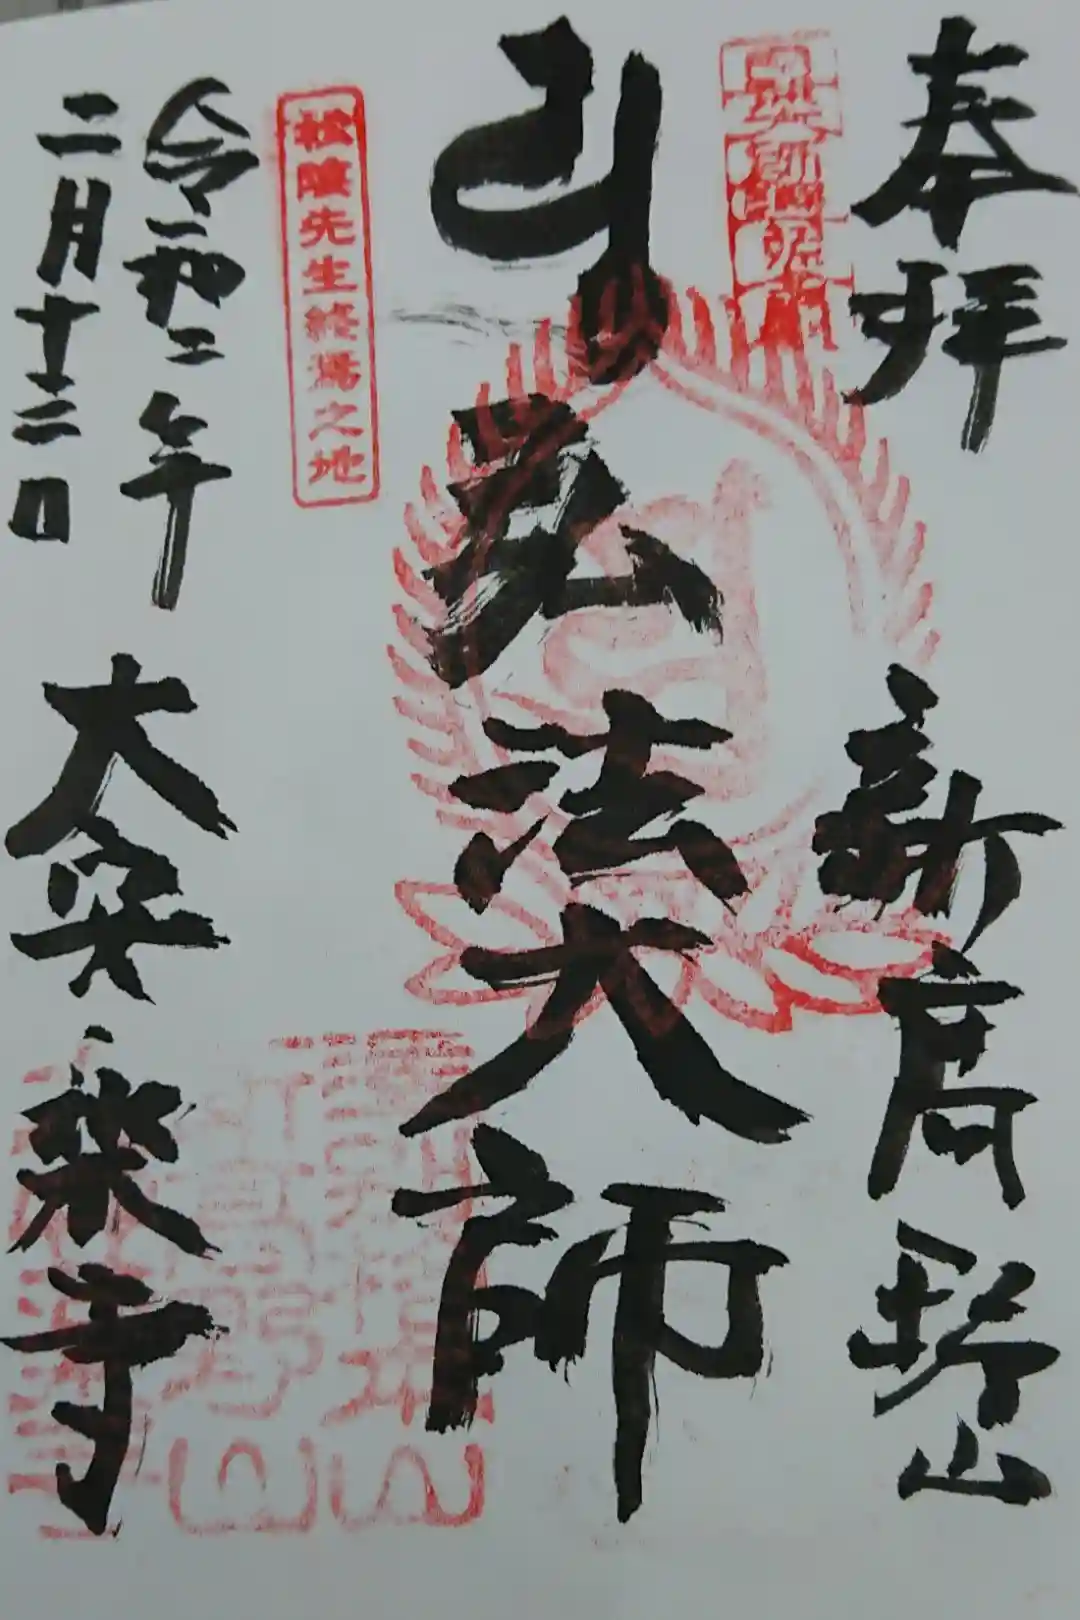 奉拝
新高野山
弘法大師
松陰先生終焉之地
令和二年
二月十二日
大安楽寺